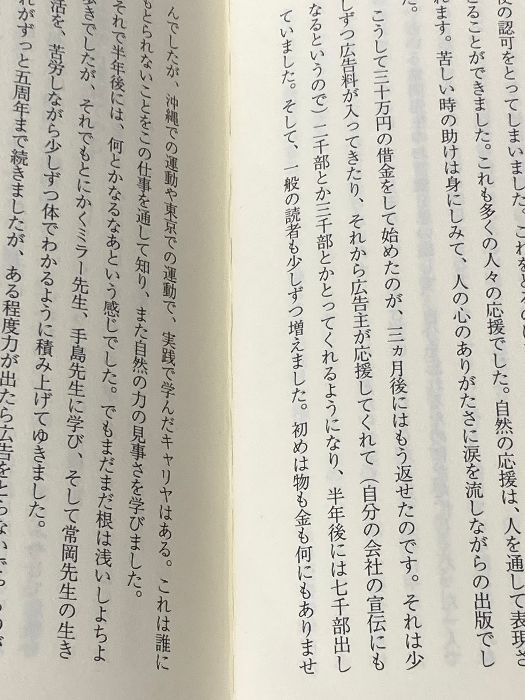 後の認可をとってしまいました。これを
ることができました。これも多くの人々の応援でした。自然の応援は、人を通して表現さ
れます。苦しい時の助けは身にしみて、人の心のありがたさに涙を流しながらの出版でし
た。
こうして三十万円の借金をして始めたのが、三ヵ月後にはもう返せたのです。それは少
しずつ広告料が入ってきたり、それから広告主が応援してくれて（自分の会社の宣伝にも
なるというので）二千部とか三千部とかとってくれるようになり、半年後には七千部出し
ていました。そして、一般の読者も少しずつ増えました。初めは物も金も何にもありませ
んでしたが、沖縄での運動や東京での運動で、実践で学んだキャリヤはある。これは誰に
もとられないことをこの仕事を通して知り、また自然の力の見事さを学びました。
それで半年後には、何とかなるなあという感じでした。でもまだまだ根は浅いしちよ
歩きでしたが、それでもとにかくミラー先生、手島先生に学び、そして常岡先生の生き
活を、苦労しながら少しずつ体でわかるように積み上げてゆきました。
れがずっと五周年まで続きましたが、ある程度力が出たら広告をとらないで